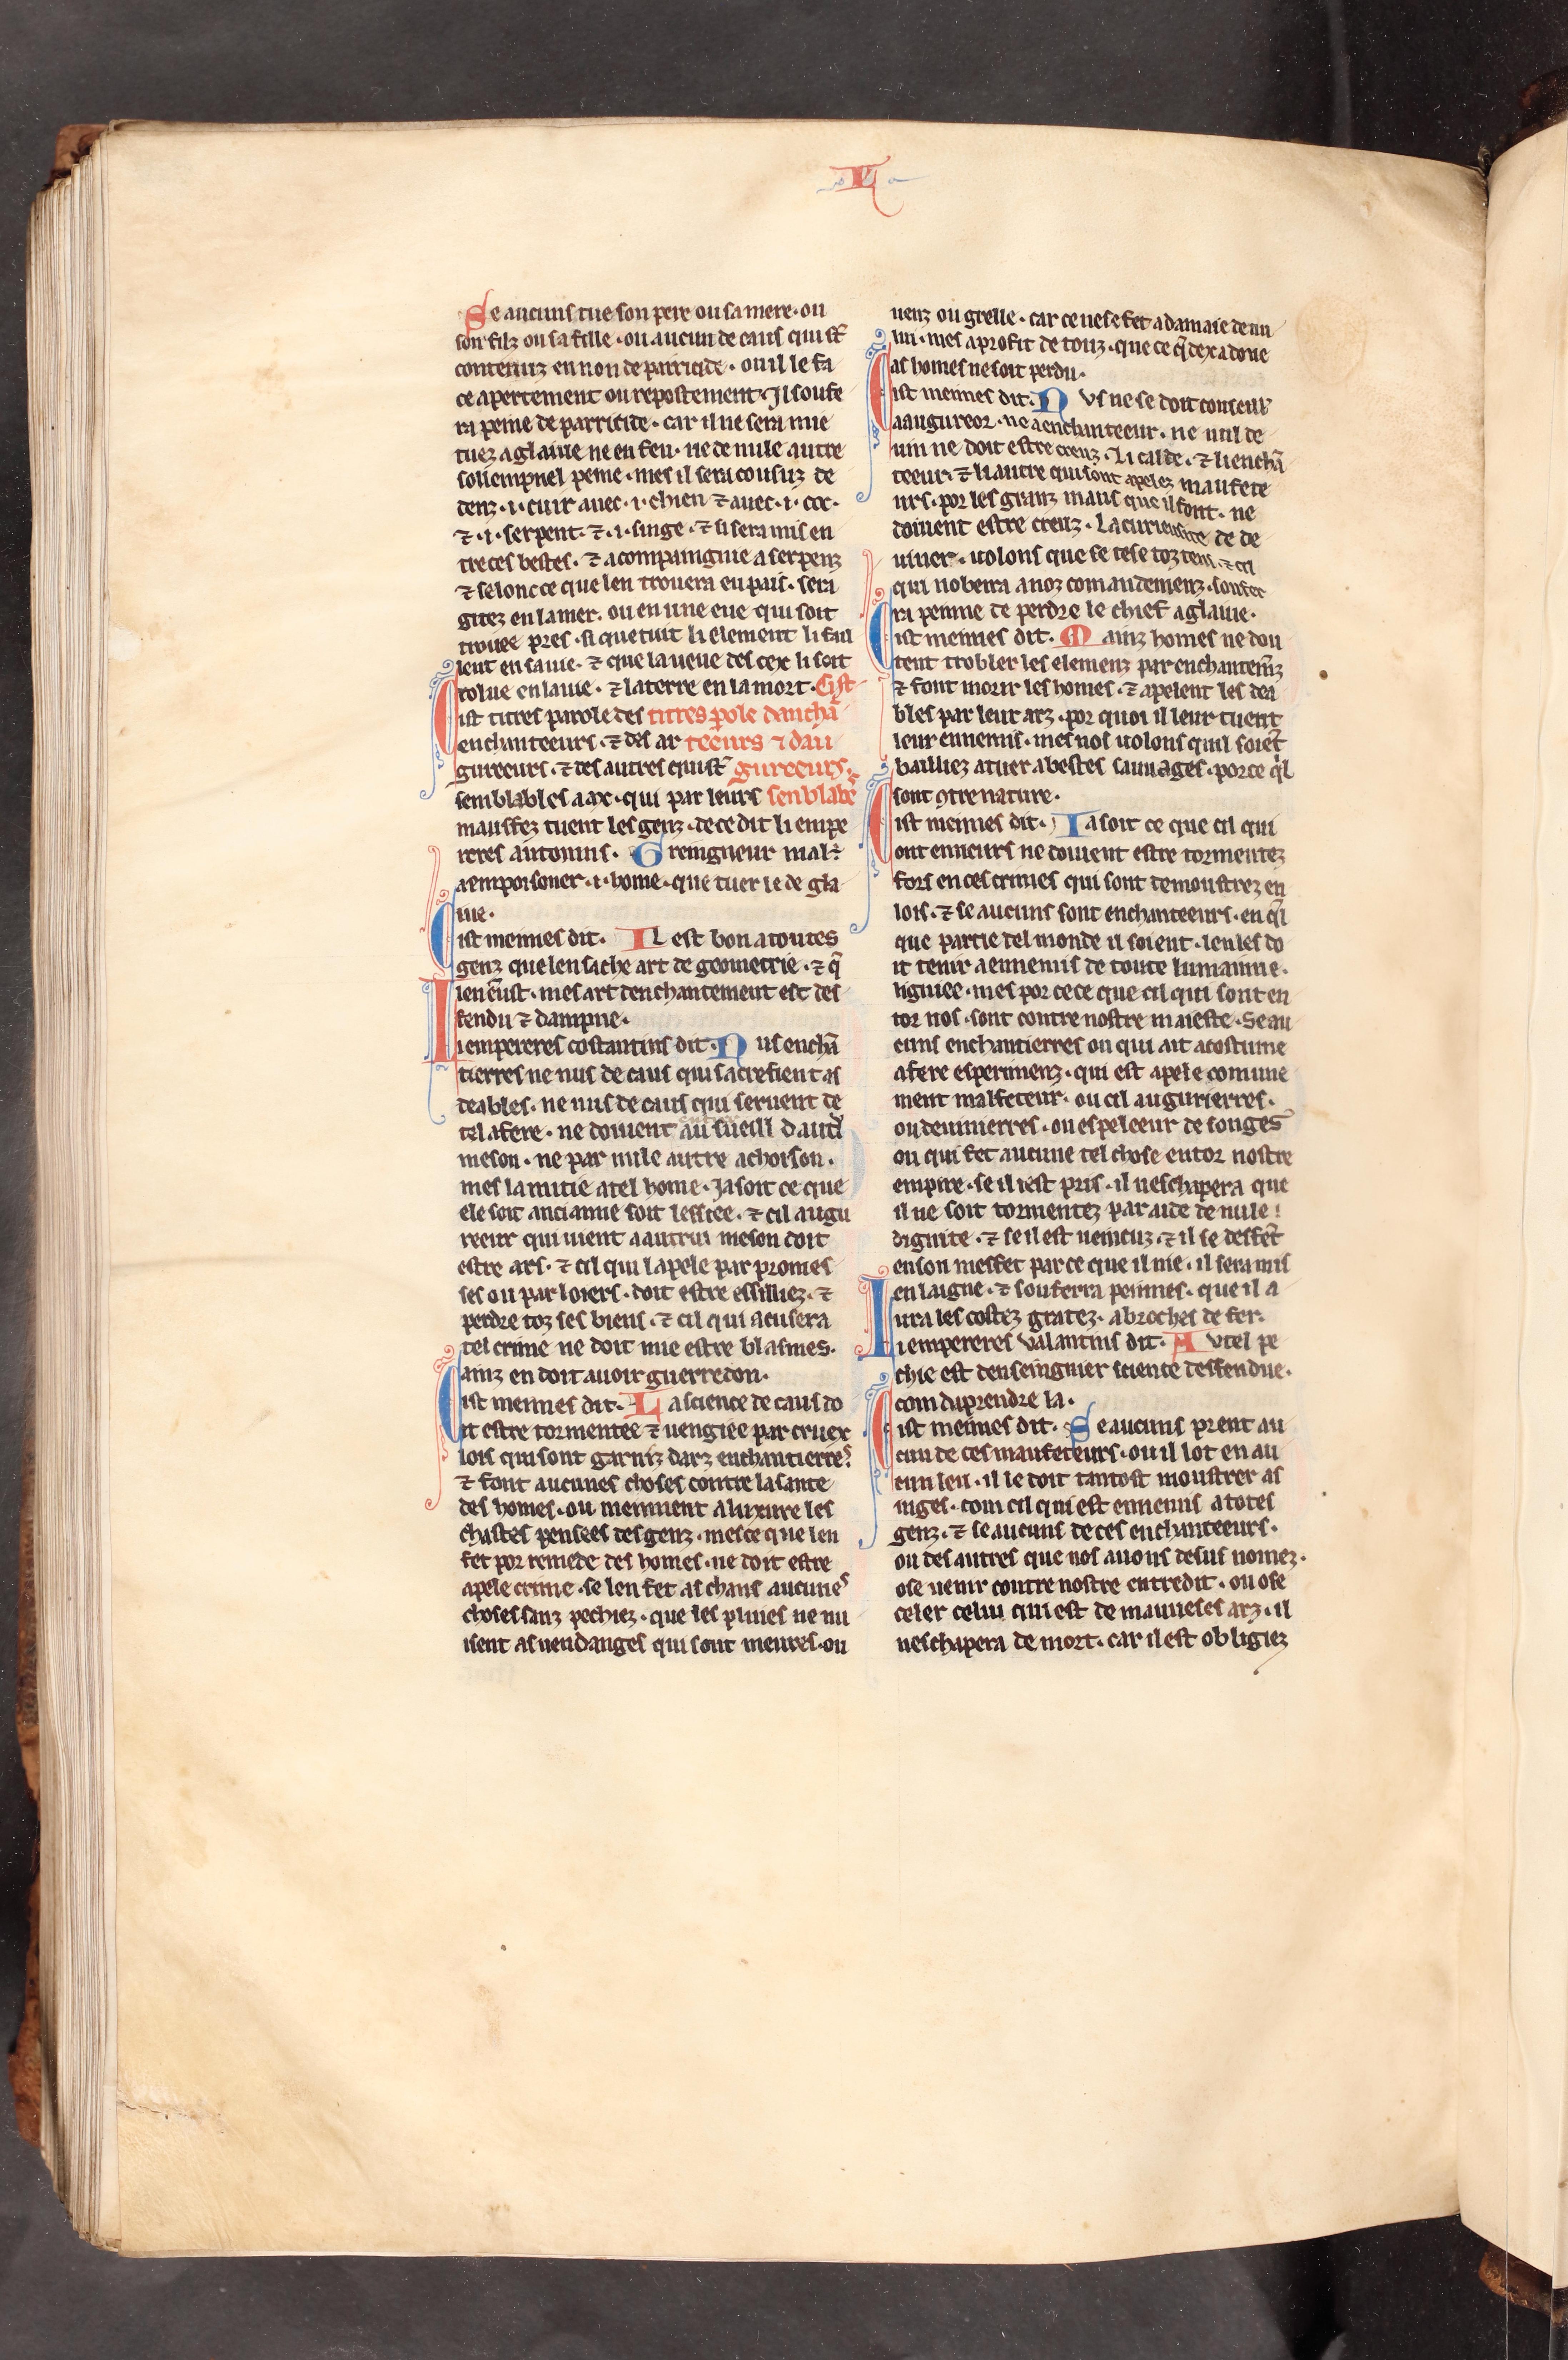 L
Se aucuns tue son pere ou sa mere · ou
son filz ou sa fille · ou aucun de caus qui st̄
contenuz en non de parricide · ou il le fa
ce apertement ou repostement · Il soufe
ra peine de parricide · car il ne sera mie
tuez a glaiue ne en feu · ne de nule autre
sollempnel peine · mes il sera cousuz de
denz · i · cuir auec · i · chien ⁊ auec · i · coc ·
⁊ · i · serpent · ⁊ · i · singe · ⁊ si sera mis en
tre ces bestes · ⁊ acompaingnie a serpenz
⁊ selonc ce que len trouera en pais · sera
gitez en la mer · ou en une eue qui soit
trouee pres · si que tuit li element li fail
lent en sa uie · ⁊ que la ueue des cex li soit
tolue en la uie · ⁊ la terre en la mort · Cist
Cist titres parole des titres ꝑole danchā
enchanteeurs · ⁊ des au teeurs ⁊ dau
gureeurs · ⁊ des autres qui st̄ gureeurs ·
semblables a ax · qui par leurs senblabe᷒
mausfez tuent les genz · de ce dit li empe
reres antonins · Greingneur mal ⁊
a empoisoner · i · home · que tuer le de gla
iue ·
Cist meimes dit · Il est bon a toutes
genz que len sache art de geometrie · ⁊ q̄
len enst · mes art denchantement est des
fendu ⁊ dampne ·
Li empereres costantins dit · Nus enchā
tierres ne nus de caus qui sacrefient as
deables · ne nus de caus qui seruent de
tel afere · ne doiuent au sueill dautᵢ
meson · ne par nule autre achoison ·
mes lamitie a tel home · Ja soit ce que
ele soit ancianne soit lessiee · ⁊ cil augu
reeur qui uient a autrui meson doit
estre ars · ⁊ cil qui lapele par promes
ses ou par loiers · doit estre essilliez · ⁊
perdre toz ses biens · ⁊ cil qui acusera
tel crime ne doit mie estre blasmes ·
ainz en doit auoir guerredon ·
Cist meimes dit · La science de caus do
it estre tormentee ⁊ uengiee par cruex
lois qui sont garniz darz enchantierres ·
⁊ font aucunes choses contre la sante
des homes · ou meinnent a luxure les
chastes pensees des genz · mes ce que len
fet por remede des homes · ne doit estre
apele crime · se len fet as chans aucunes
choses sanz pechiez · que les pluies ne nu
isent as uendanges qui sont meures · ou
uenz ou grelle · car ce ne se fet a damaie de nu
lui · mes a profit de touz · que ce q̄ dex a done
as homes ne soit perdu ·
Cist meimes dit · Nus ne se doit conseill̄
a augureor · ne a enchanteeur · ne nul de
uin ne doit estre creuz · Li calde · ⁊ li enchā
teeur · ⁊ li autre qui sont apelez maufete
urs · por les granz maus que il font · ne
doiuent estre creuz · La curieusete de de
uiner · uolons que se tese toz tens · ⁊ cil
qui nobeira a noz comandemenz · soufer
ra peinne de perdre le chief a glaiue ·
Cist meimes dit · Mainz homes ne dou
tent trobler les elemenz par enchantem̄z
⁊ font morir les homes · ⁊ apelent les dea
bles par leur arz · por quoi il leur tuent
leur ennemis · mes nos uolons quil soiēt
bailliez a tuer a bestes sauuages · por ce q̄l
sont ꝯtre nature ·
Cist meimes dit · Ja soit ce que cil qui
ont enneurs ne doiuent estre tormentez
fors en ces crimes qui sont demoustrez en
lois · ⁊ se aucuns sont enchanteeurs · en q̄l
que partie del monde il soient · len les do
it tenir a ennemis de toute lumainne ·
ligniee · mes por ce ce que cil qui sont en
tor nos · sont contre nostre maieste · Se au
cuns enchantierres ou qui ait acostume
a fere esperimenz · qui est apele comune
ment malfeteur · ou cil augurierres ·
ou deuinierres · ou espeleeur de songes
ou qui fet aucune tel chose entor nostre
empire · se il iest pris · il neschapera que
il ne soit tormentez par aide de nule
dignite · ⁊ se il est ueincuz · ⁊ il se desfēt
en son mesfet par ce que il nie · il sera mis
en laigne · ⁊ soufera peinnes · que il a
iura les costez gratez · a broches de fer ·
Li empereres valantins dit · Autel pe
chie est denseingnier science desfendue ·
com daprendre la ·
Cist meimes dit · Se aucuns prent au
cun de ces maufeteurs · ou il lot en au
cun leu · il le doit tantost moustrer as
iuges · com cil qui est ennemis a totes
genz · ⁊ se aucuns de ces enchanteeurs ·
ou des autres que nos auons desus nomez ·
ose uenir contre nostre entredit · ou ose
celer celui qui est de mauueses arz · il
neschapera de mort · car il est obligiez